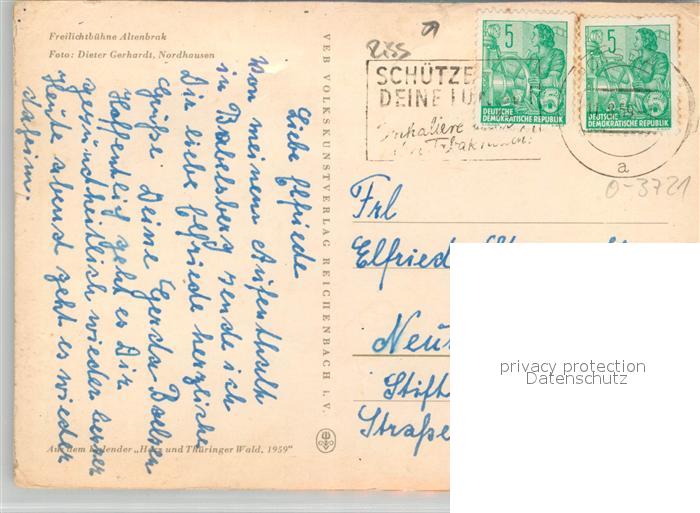 Freilichtbühne Altenbrak
Foto: Dieter Gerhardt, Nordhausen
Liebe Elfriede
Von meinem Aufenthalt
in Babelsberg sende ich
Dir liebe Elfriede herzliche
Grüße Deine Gerda
Hoffentlich geht es Dir
gesundheitlich wieder besser
Heute abend geht es wieder
daheim.
Aus dem Kalender „Harz und Thüringer Wald, 1959"
VEB VOLKSKUNSTVERLAG REICHENBACH i. V.
SCHÜTZE
DEINE LU
Inhaliere
5
DEUTSCHE
DEMOKRATISCHE REPUBLIK
5
DEUTSCHE
DEMOKRATISCHE REPUBLIK
a
0-3721
Frl
Elfried
Neu
Stift
Straße
privacy protection
Datenschutz